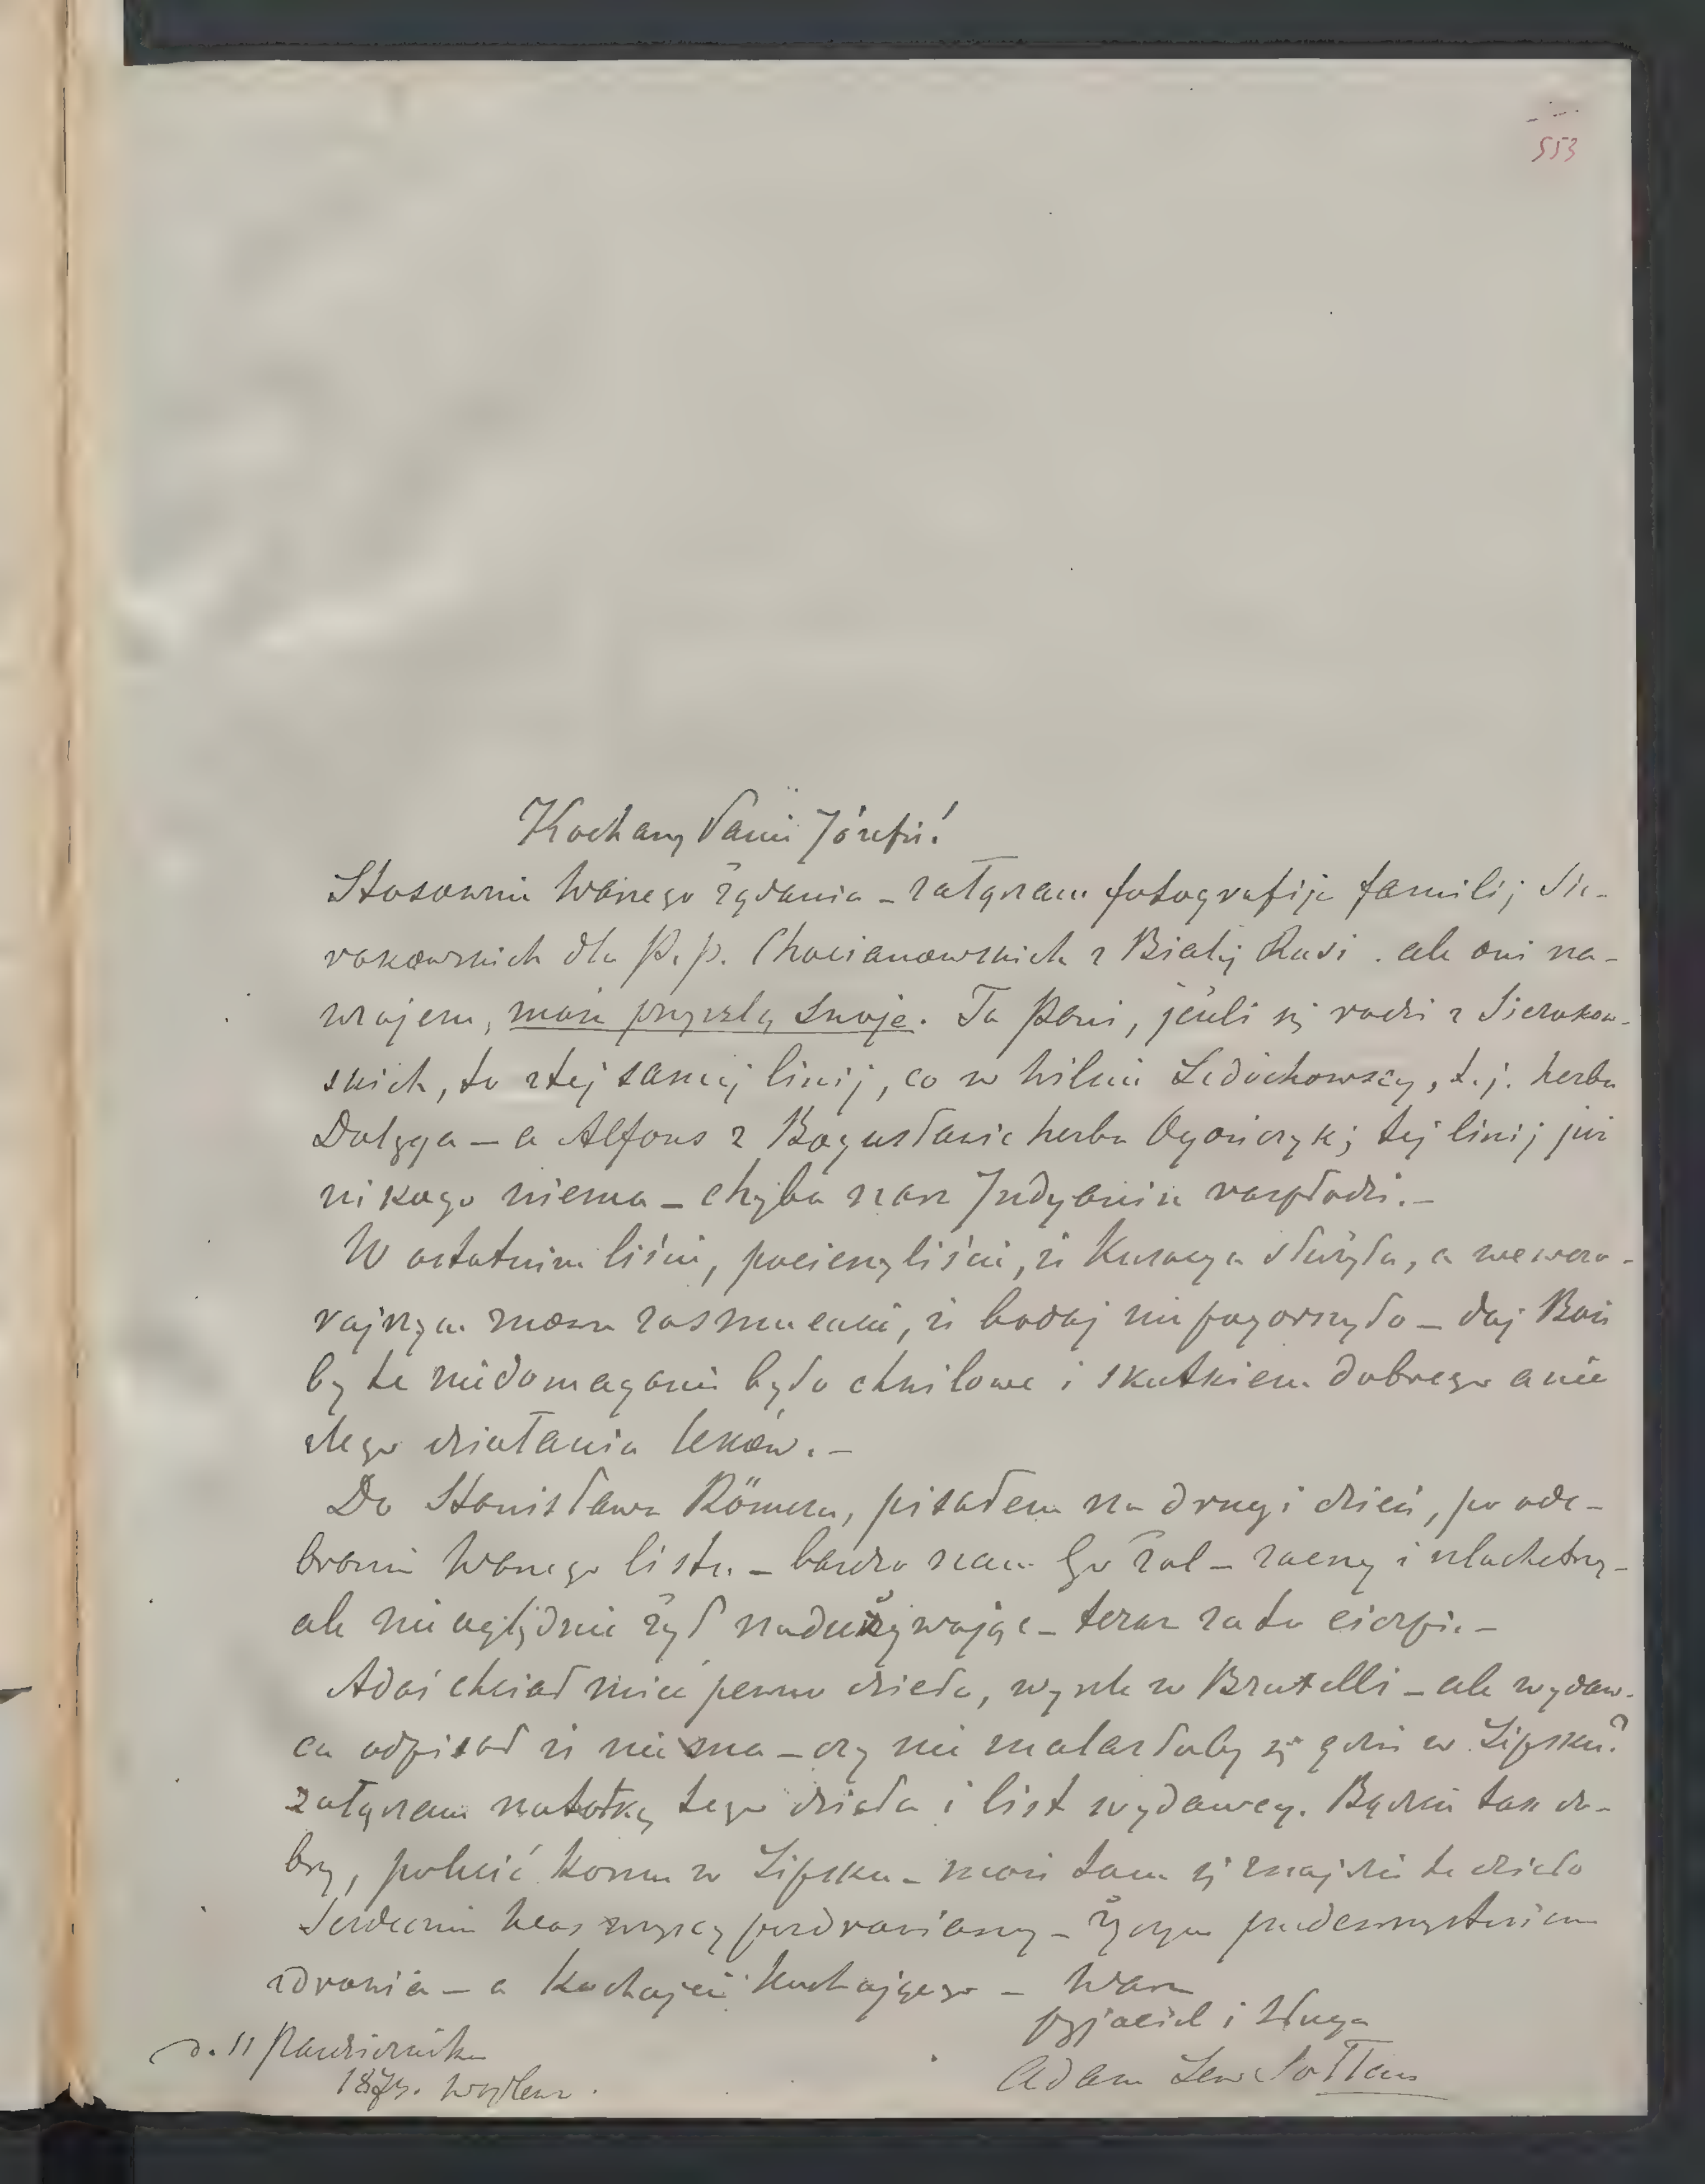 553
Kochany Panie Józefie!
Stosownie Waszego żądania – załączam fotografije familij Sie-
rakowskich dla P. p. Chocianowskich z Białej Rusi. ale oni na-
wzajem, może przyszlą swoje. Ta Pani, jeżeli się rodzi z Sierakow-
skich, to z tej samej linij, co w Wilnie Ledóchowscy, t. j. herbu
Dołęga – a Alfons z Bogusławic herbu Ogończyk; tej linij już
nikogo niema – chyba nasz Indyanin rozpłodzi. –
W ostatnim liście, pocieszyliście, że Kuracya służyła, a we wczo-
rajszym znowu zasmucacie, że bodaj nie pogorszyło – daj Boże
by te niedomagania było chwilowe i skutkiem dobrego a nie
złego działania leków. –
Do Stanisława Römera, pisałem na drugi dzień, po ode-
braniu Waszego listu. – bardzo nam Go żal – zacny i szlachetny –
ale nieoględnie żył nadużywając – teraz za to cierpi. –
Adaś chciał mieć pewne dzieło, wyszłe w Bruxelli – ale wydaw-
ca odpisał że nie ma – czy nie znalazłoby się gdzie w Lipsku?
załączam notatkę tego dzieła i list wydawcy. Bądźcie tak do-
bry, polecić komu w Lipsku – może tam się znajdzie te dzieło
Serdecznie Was wszyscy pozdrawiamy – Życzym przedewszystkiem
zdrowia – a Kochajcie Kochającego – Wasz
przyjaciel i sługa
Adam Lew Sołtan
d. 11 Października
1879.